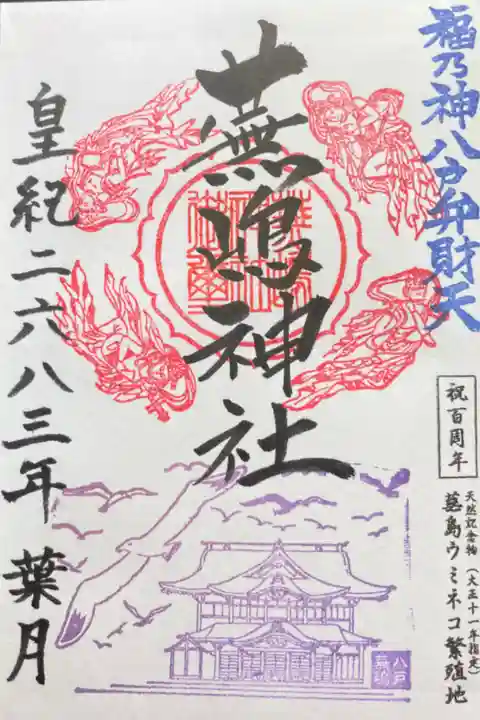 福乃神八戸弁財天
祝百周年
天然記念物(大正十一年指定)
蕪島ウミネコ繁殖地
蕪嶋神社
八戸
蕪嶋
皇紀二六八三年 葉月